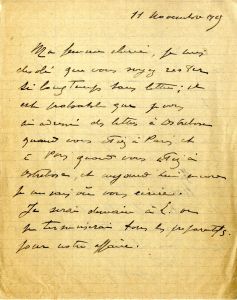 11 Novembre 1909
Ma femme chérie, je suis
désolé que vous soyez restée
si longtemps sans lettres; il
est probable que je vous
ai adressé des lettres à
quand vous étiez à Paris et
à Paris quand vous étiez à
et aujourd'hui encore
je ne sais où vous écrire.
Je serai demain à L. où
je terminerai tous les préparatifs
pour notre affaire.